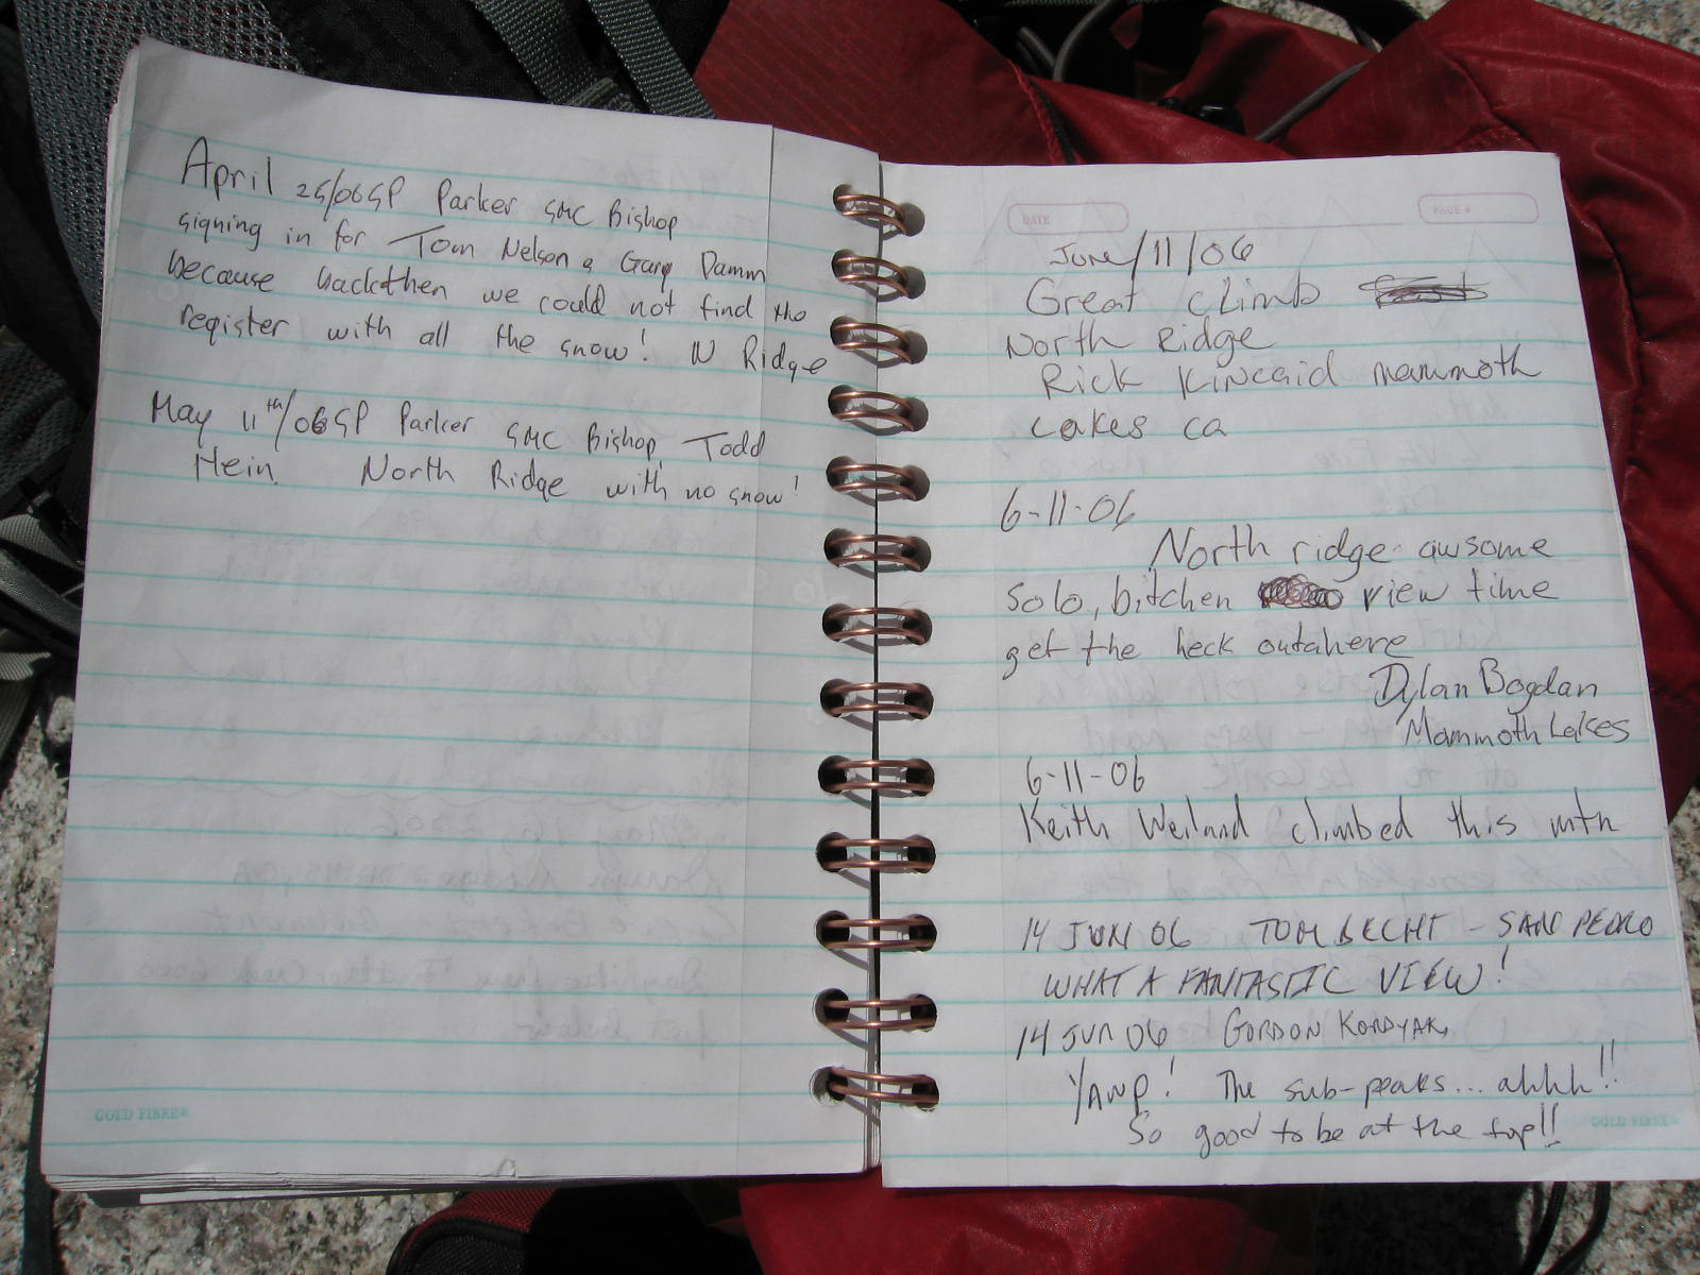 April 25/06 SP Parker SMC Bishop
signing in for Tom Nelson & Gary Damm
because back then we could not find the
register with all the snow! N Ridge
May 11th/06 SP Parker SMC Bishop, Todd
Hein. North Ridge with no snow!
GOLD FIBRE®
DATE
PAGE #
June/11/06
Great climb
North Ridge
Rick Kincaid mammoth
Lakes ca
6-11-06
North ridge awsome
solo, bitchen view time
get the heck outahere
Dylan Bogdan
Mammoth Lakes
6-11-06
Keith Weiland climbed this mtn
14 JUN 06 TOM BECHT - SAN PEDRO
WHAT A FANTASTIC VIEW!
14 JUN 06 GORDON KORDYAK,
YAWP! The sub-peaks... ahhh!!
So good to be at the top!!
GOLD FIBRE®